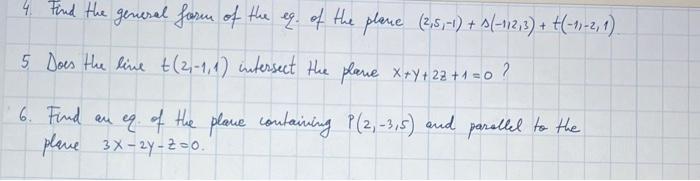 4. Find the general form of the eq. of the plane (2,5,-1) + s(-1,2,3) + t(-1,-2,1)
5 Does the line t(2,-1,1) intersect the plane x+y+2z+1=0 ?
6. Find an eq. of the plane containing P(2,-3,5) and parallel to the
plane 3x-2y-z=0.